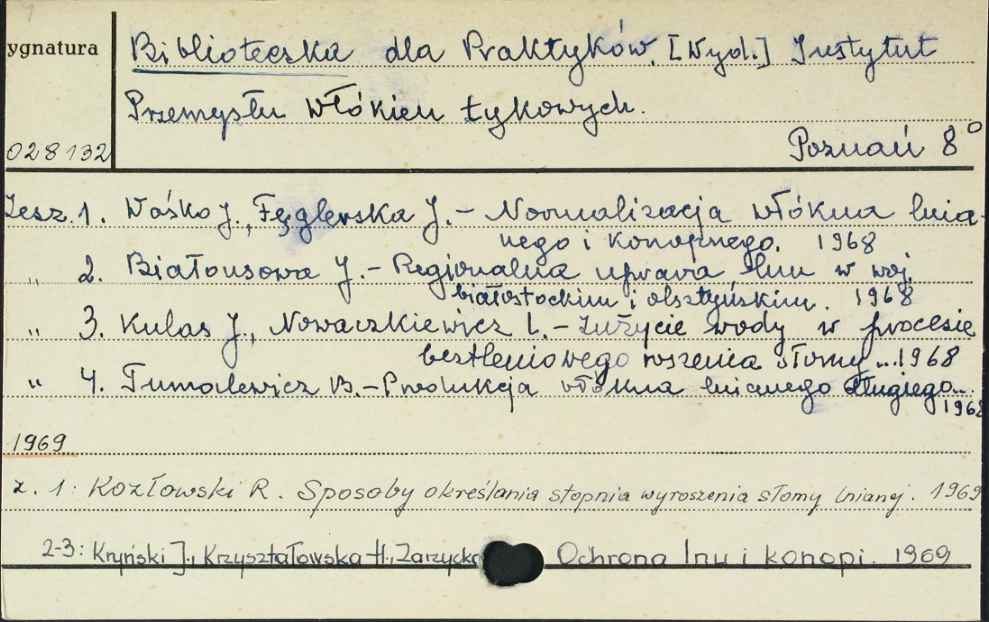 ygnatura
Biblioteczka dla Praktyków. [Wyd.] Instytut
Przemysłu Włókien Łykowych.
028132
Poznań 8°
Zesz. 1. Waśko J., Fęglerska J. – Normalizacja włókna lnia-
nego i konopnego. 1968
„ 2. Białousowa J. – Regionalna uprawa lnu w woj.
białostockim i olsztyńskim. 1968
„ 3. Kulas J., Nowaczkiewicz L. – Zużycie wody w procesie
beztlenowego roszenia słomy... 1968
„ 4. Tumalewicz B. – Produkcja włókna lnianego długiego...
1968
1969
z. 1: Kozłowski R. Sposoby określania stopnia wyroszenia słomy lnianej. 1969
2-3: Kryński J., Krzyształowska H., Zarzycka Ochrona lnu i konopi. 1969